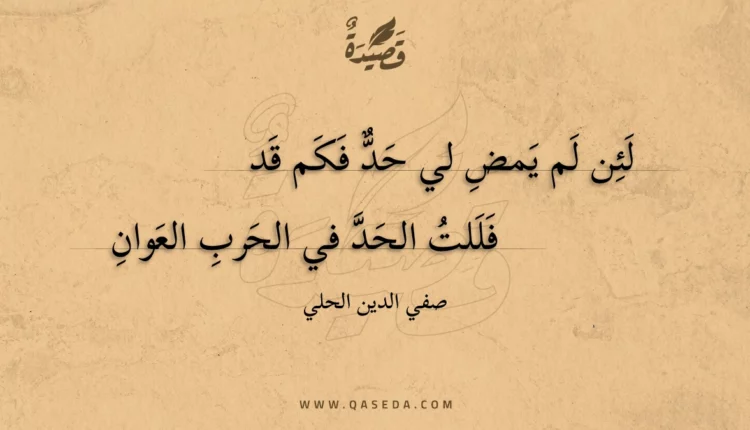 قَصِيدَةٌ
لَئِن لَم يَمضِ لي حَدٌّ فَكَم قَد
فَلَلتُ الحَدَّ في الحَربِ العَوانِ
صفي الدين الحلي
WWW.QASEDA.COM